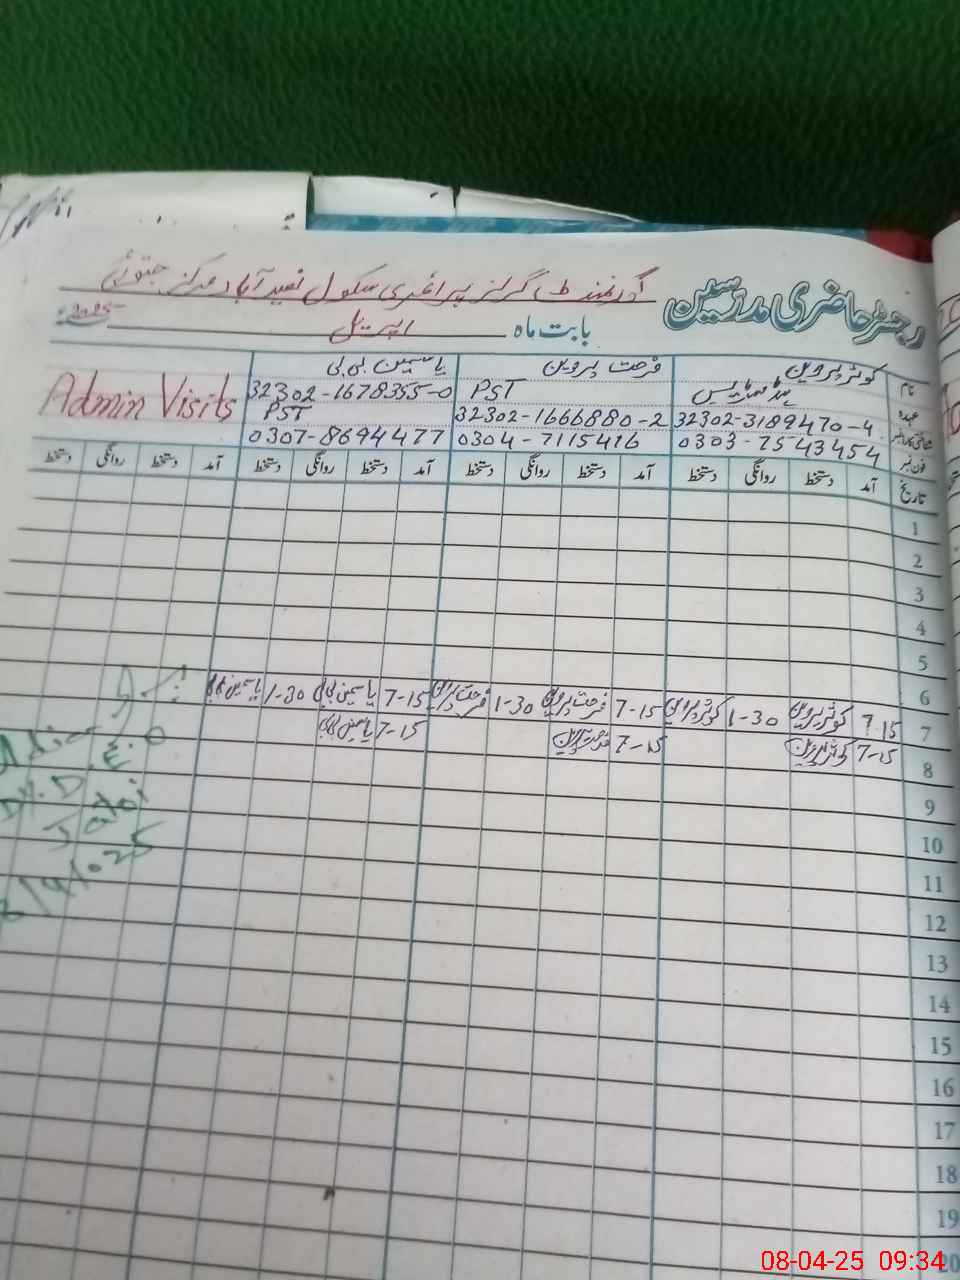 رجسٹر حاضری مدرسین
گورنمنٹ گرلز پرائمری سکول نصیر آباد مرکز جتوئی
بابت ماہ اپریل 2025
نام کوثر پروین فرحت پروین یاسمین بی بی
عہدہ ہیڈ مسٹریس PST PST
شناختی کارڈ نمبر 32302-3189470-4 32302-1666880-2 32302-1678355-0
فون نمبر 0303-7543454 0304-7115416 0307-8694477
Admin Visits
تاریخ آمد دستخط روانگی دستخط آمد دستخط روانگی دستخط آمد دستخط روانگی دستخط آمد دستخط روانگی دستخط
1
2
3
4
5
6
7 7.15 کوثر پروین 1-30 کوثر پروین 7-15 فرحت پروین 1-30 فرحت پروین 7-15 یاسمین بی بی 1-30 یاسمین بی بی
8 7-15 کوثر پروین 7-15 فرحت پروین 7-15 یاسمین بی بی
9
10
11
12
13
14
15
16
17
18
19
20
Dy. D.E.O
Jatoi
8/4/025
08-04-25 09:34